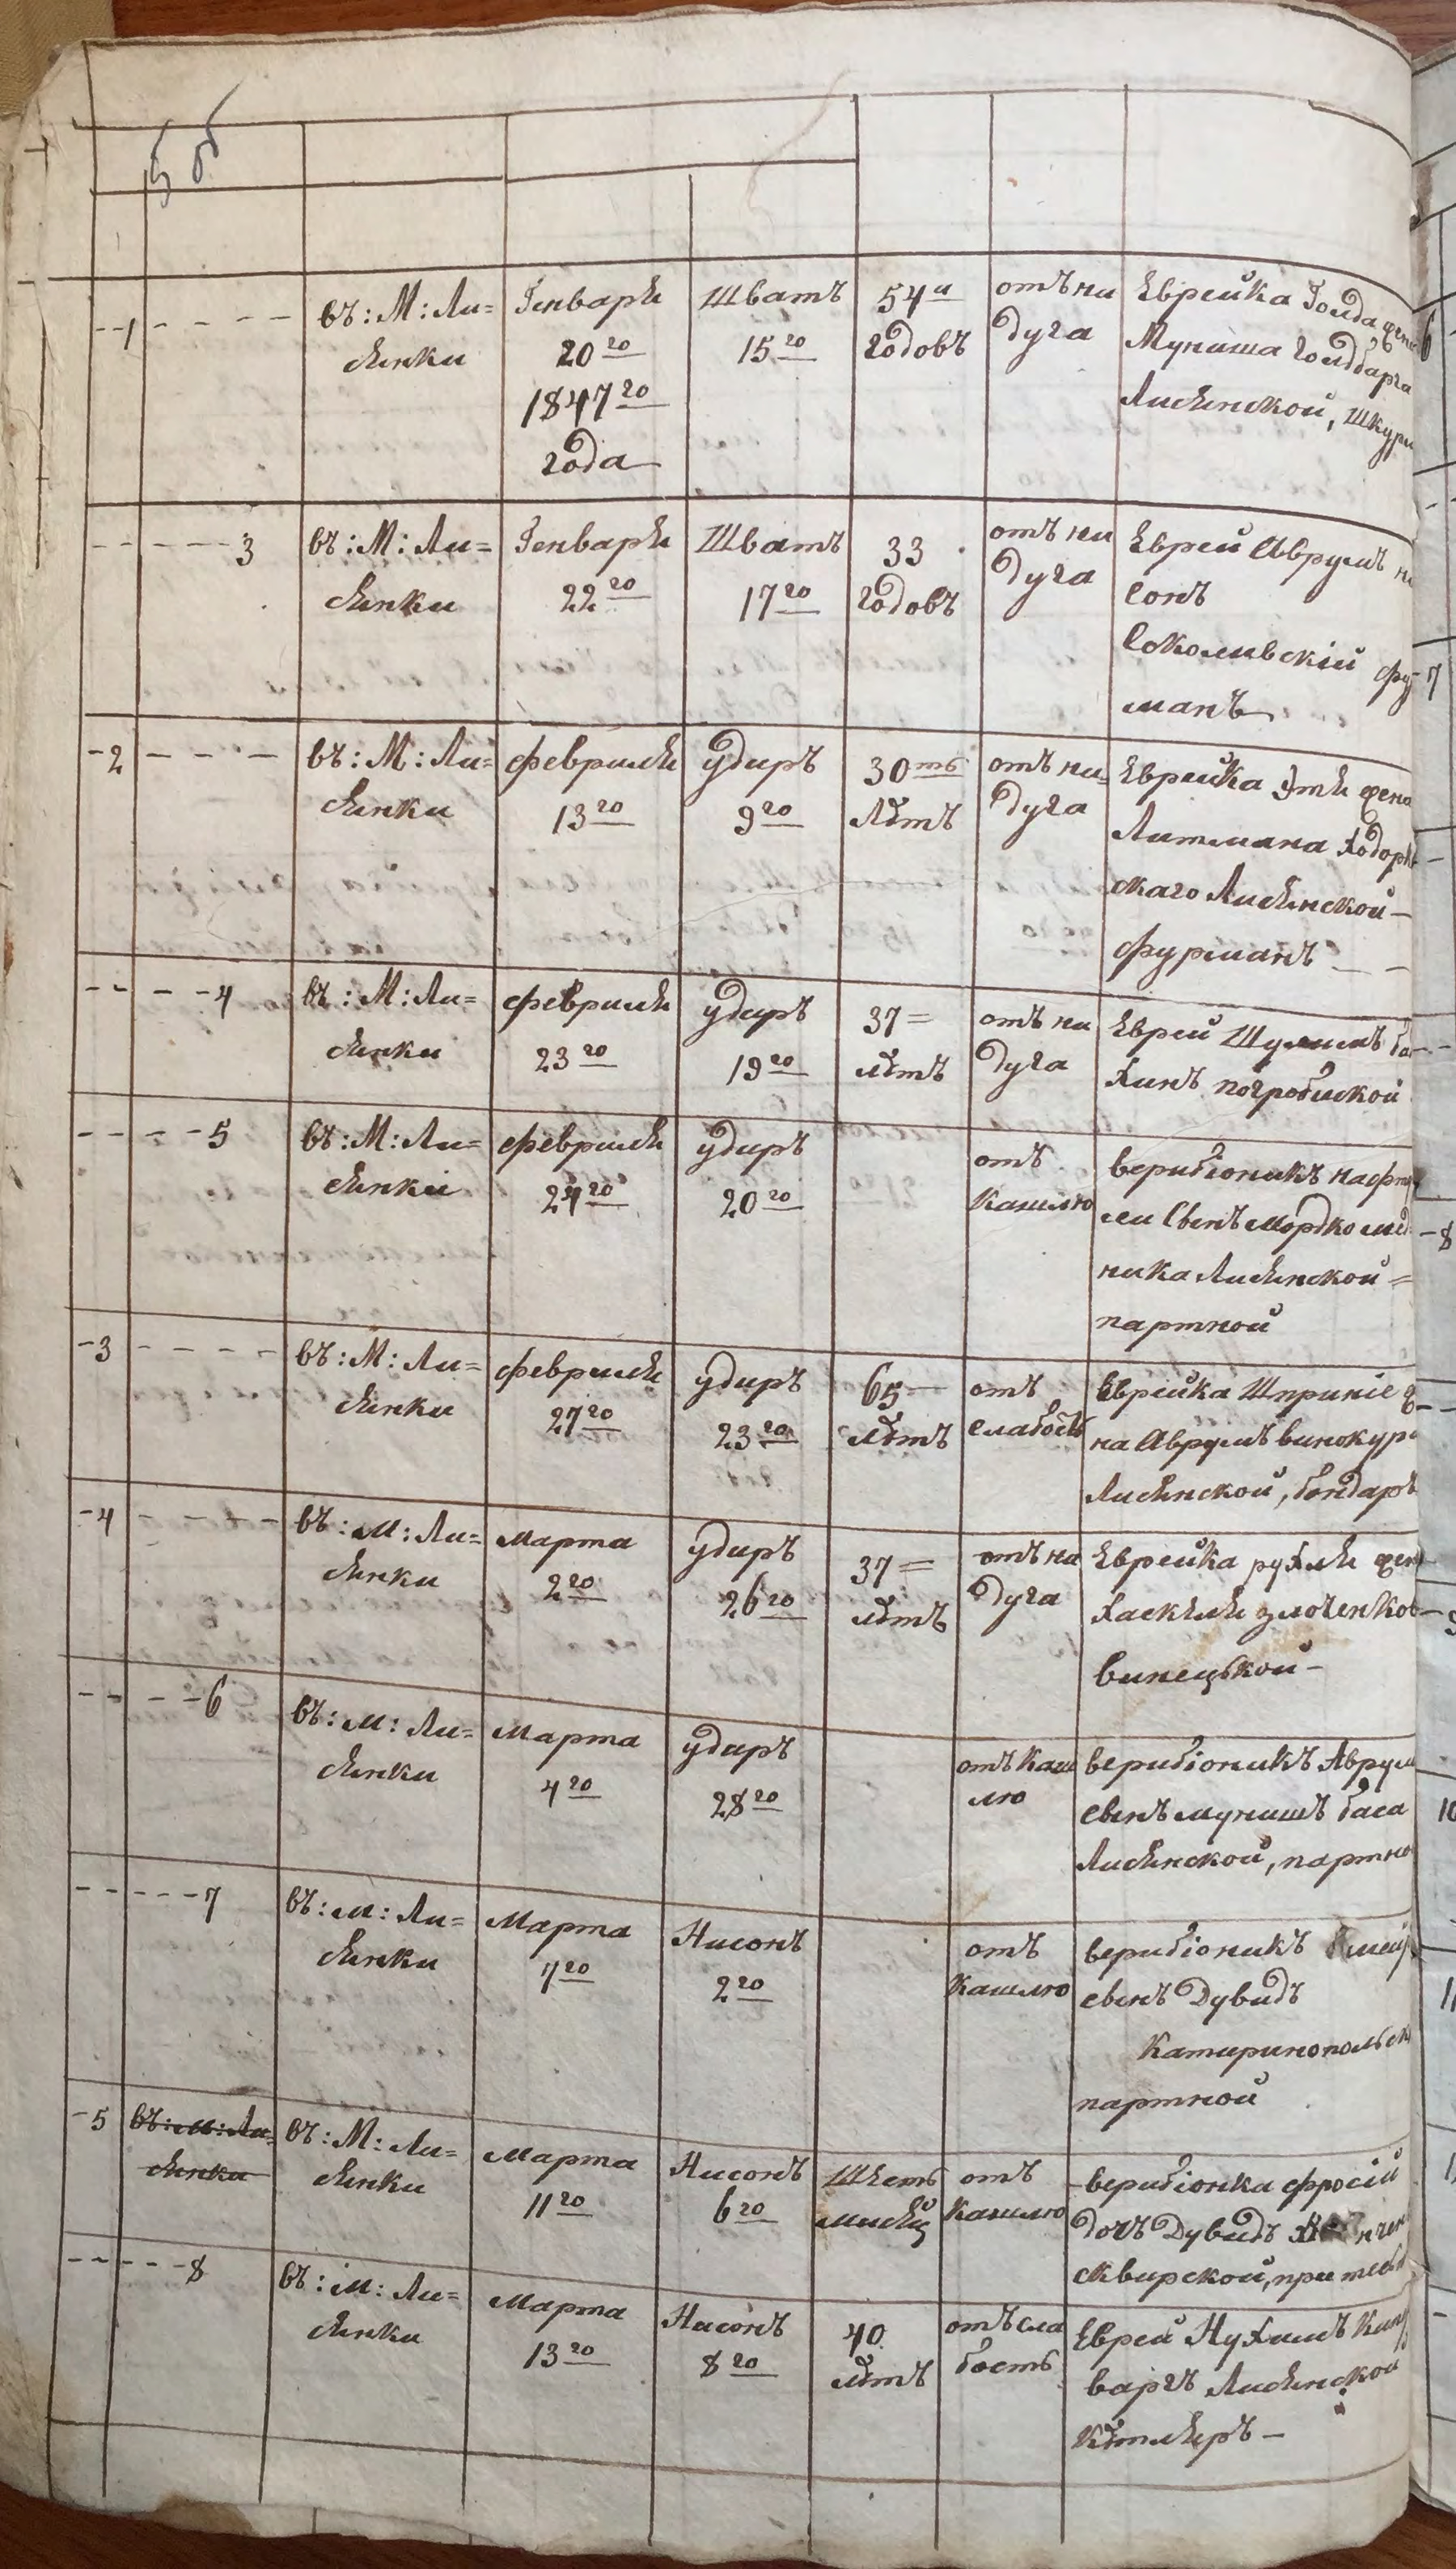 5 об
-- 1 - - - -
въ: М: Ли=
сянки
Генваря
20го
1847го
года
Шватъ
15го
54и
годовъ
отъ ни
дуга
Еврейка Голда жена
Муниша Голдбарга
Лисянской, шкурн
- - - - - 3
въ: М: Ли=
сянки
Генваря
22го
Шватъ
17го
33
годовъ
отъ ни
дуга
Еврей Аврумъ
сонъ
Соколивскій фур
манъ
-2 - - - -
въ: М: Ли=
сянки
февраля
13го
удиръ
9го
30ть
лѣтъ
отъ ни=
дуга
Еврейка Этя жена
Литмана Ходоров
скаго Лисянской -
фурманъ - -
-- - - 4
въ: М: Ли=
сянки
февраля
23го
удиръ
19го
37 =
лѣтъ
отъ ни
дуга
Еврей Шулимъ
хинъ погробиской
- - - - 5
въ: М: Ли=
сянки
февраля
24го
удиръ
20го
отъ
кашлю
верибіоникъ нафту
ли сынъ мордко мед
ника Лисянской =
партной
-3 - - - -
въ: М: Ли=
сянки
февраля
27го
удиръ
23го
65 -
лѣтъ
отъ
слабость
Еврейка Шпринiе ж
на Аврумъ винокура
Лисянской, бондаръ
-4 - - - -
въ: м: Ли=
сянки
марта
2го
удиръ
26го
37 =
лѣтъ
отъ на
дуга
Еврейка рухля жен
хаскеля злоченков
винецькой -
-- - - 6
въ: м: Ли=
сянки
марта
4го
удиръ
28го
отъ каш
лю
верибіоникъ Аврум
сынъ мунишъ баса
Лисянской, партно
- - - - - 7
въ: м: Ли=
сянки
марта
7го
Нисонъ
2го
отъ
кашлю
верибіоникъ
сынъ Дувидъ
Катиринопольск
партной
-5
въ: м: Ли=
сянки
въ: М: Ли=
сянки
марта
11го
Нисонъ
6го
Шесть
мисяц
отъ
кашлю
верибіонка фросій
дочъ Дувидъ
сквирской,
-- - - - 8
въ: м: Ли=
сянки
марта
13го
Нисонъ
8го
40
лѣтъ
отъ сла
бость
Еврей Нухимъ
варгъ Лисянской
кѣтляръ -